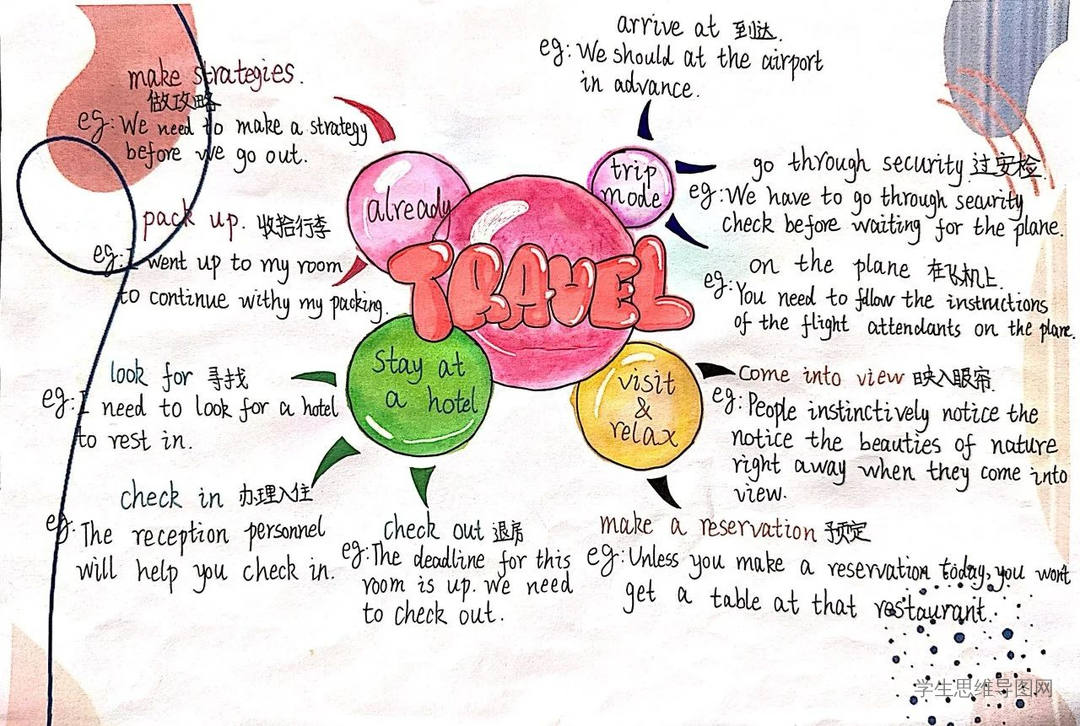 make strategies.
做攻略
eg: We need to make a strategy
before we go out.
pack up. 收拾行李
eg: I went up to my room
to continue withy my packing.
look for 寻找
eg: I need to look for a hotel
to rest in.
check in 办理入住
eg: The reception personnel
will help you check in.
check out 退房
eg: The deadline for this
room is up. we need
to check out.
already
TRAVEL
stay at
a hotel
trip
mode
visit
&
relax
arrive at 到达.
eg: We should at the airport
in advance.
go through security 过安检.
eg: We have to go through security
check before waiting for the plane.
on the plane 在飞机上.
eg: You need to fllow the instructions
of the flight attendants on the plane.
come into view 映入眼帘.
eg: People instinctively notice the
notice the beauties of nature
right away when they come into
view.
make a reservation 予预定
eg: Unless you make a reservation today, you won't
get a table at that restaurant.
学生思维导图网